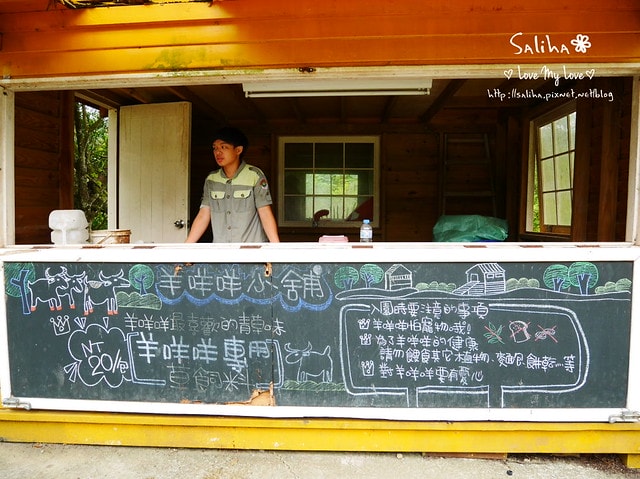 Saliha
Love My Love
http://saliha.pixnet.net/blog
羊咩咩小舖
羊咩咩最喜歡的青草味
NT
20/包
羊咩咩專用
草飼料
入園時要注意的事項
羊咩咩怕寵物哦!
為了羊咩咩的健康
請勿餵食其它植物、麵包、餅乾…等
對羊咩咩要有愛心